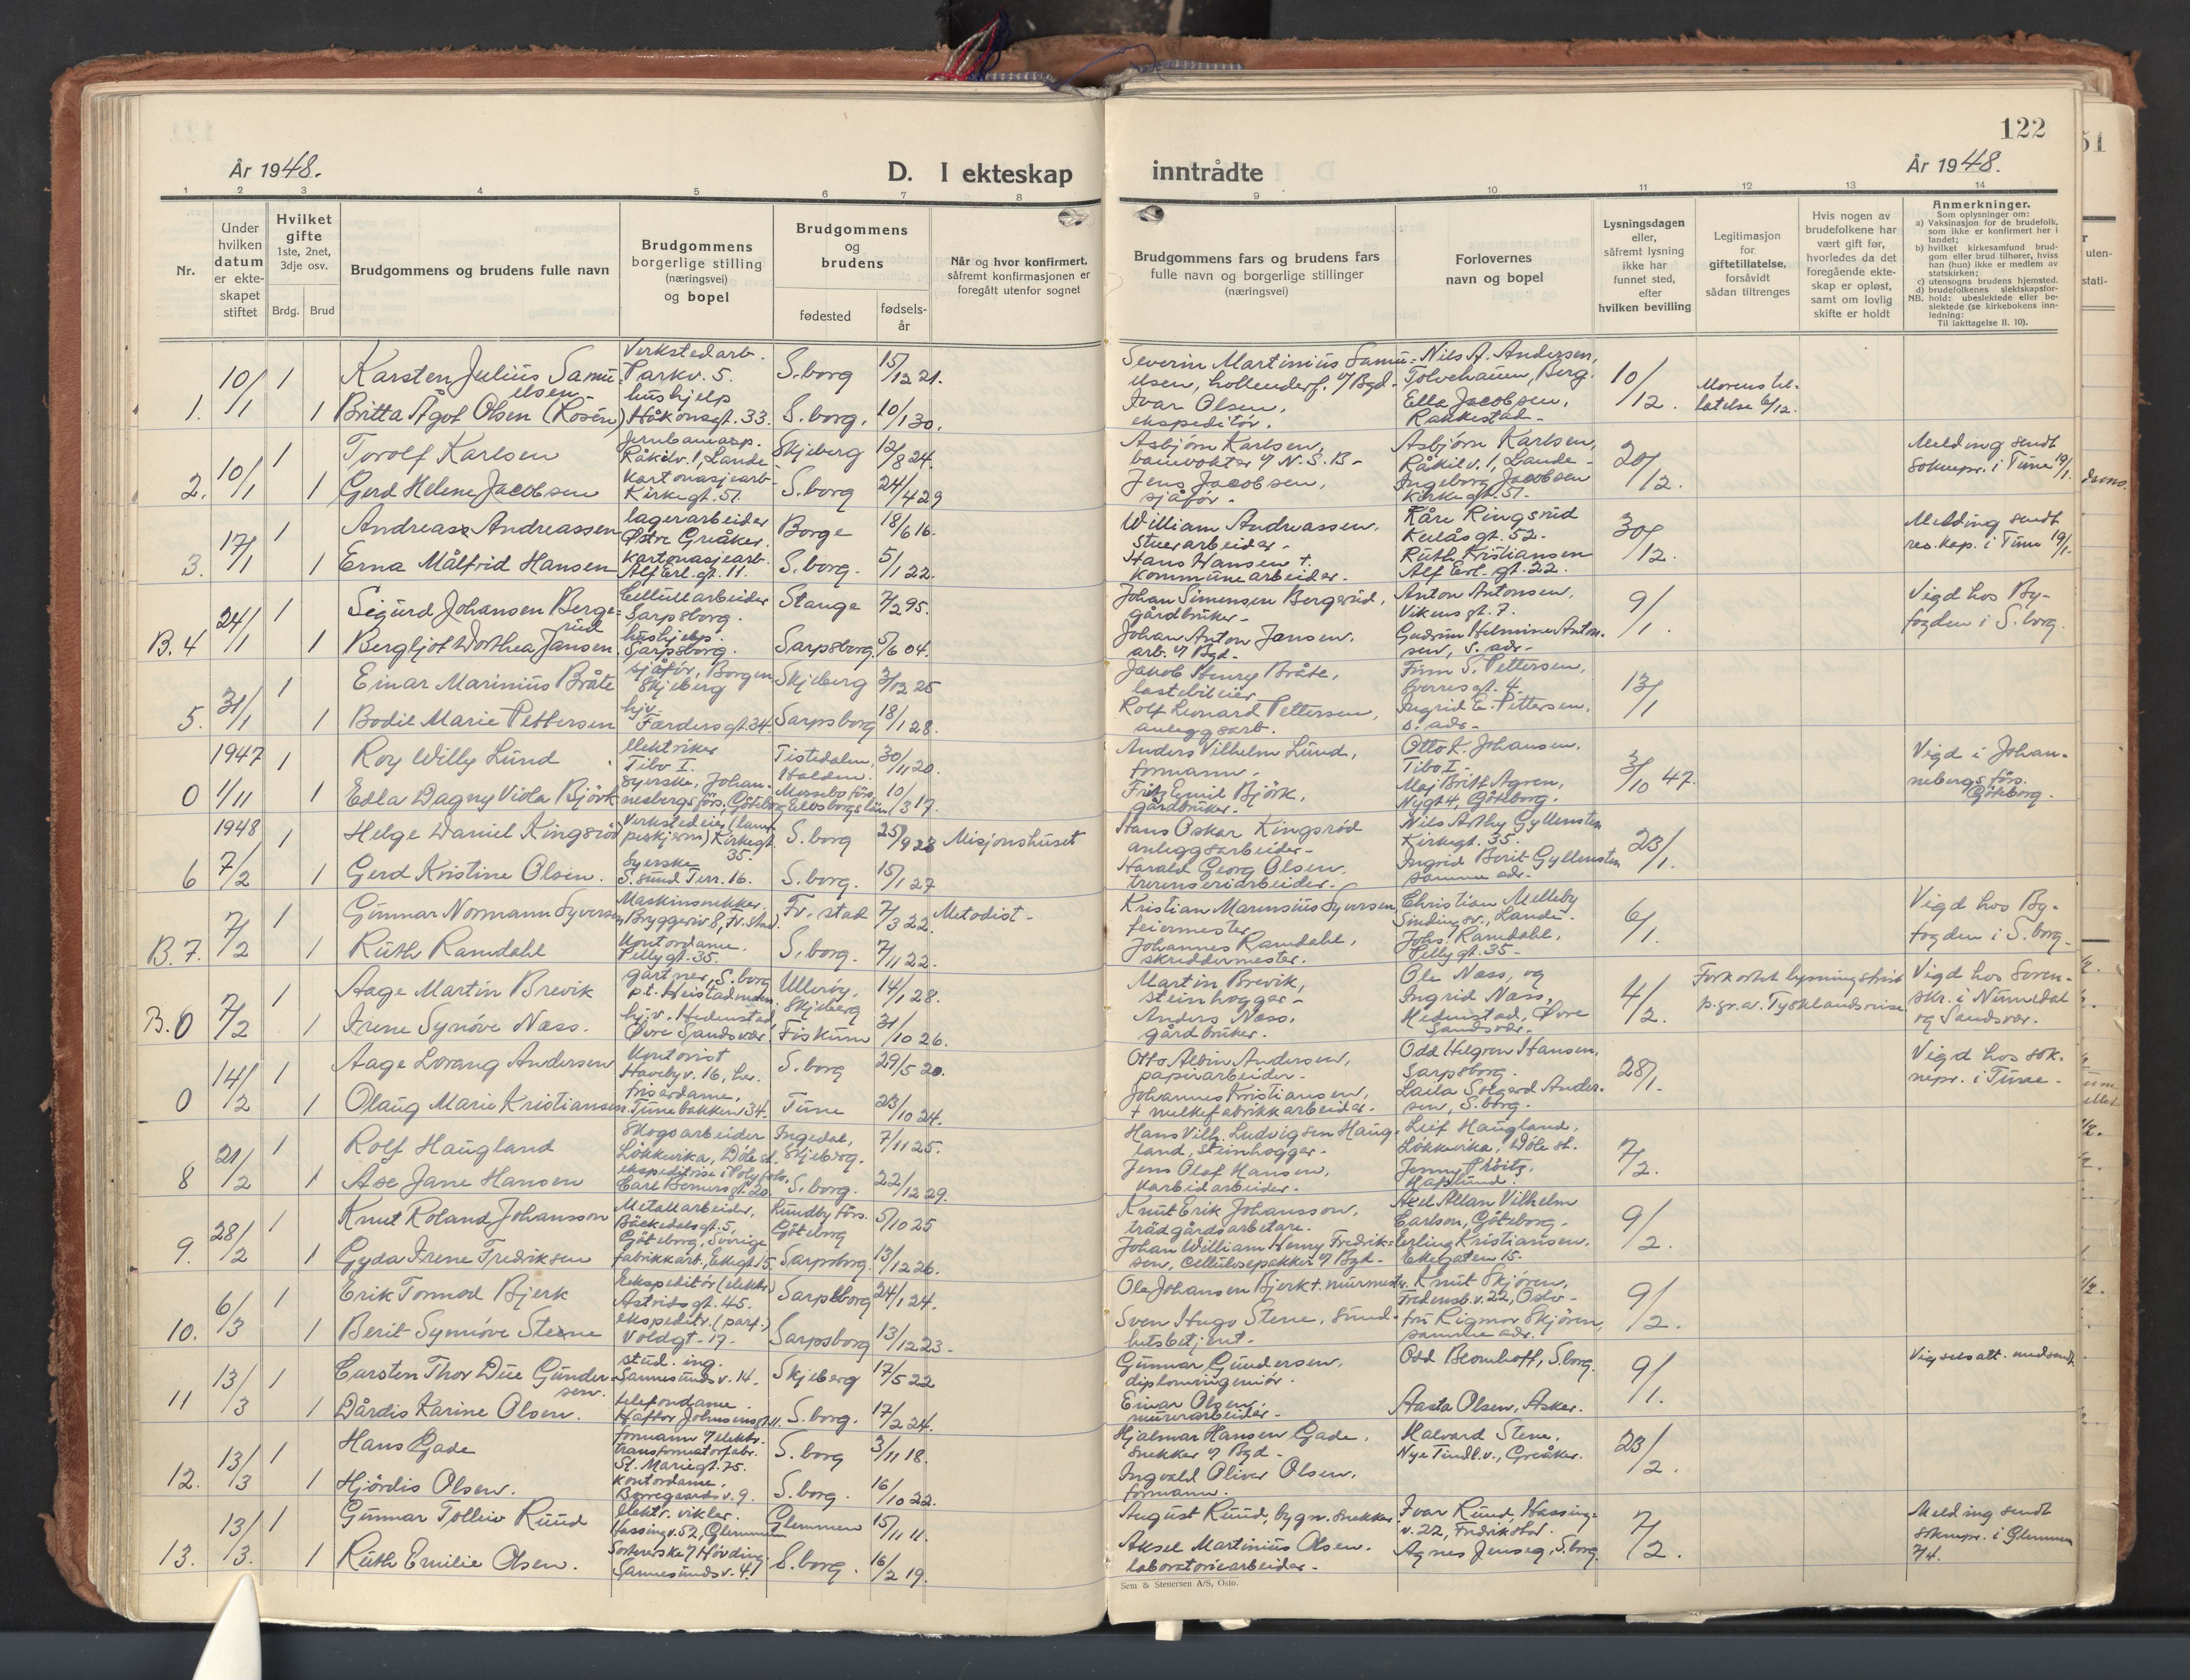 122
År 1948.
D. I ekteskap inntrådte
År 1948.
1 2 3 4 5 6 7 8 9 10 11 12 13 14
Nr.
Under hvilken datum er ekteskapet stiftet
Hvilket gifte 1ste, 2net, 3dje osv.
Brdg. Brud
Brudgommens og brudens fulle navn
Brudgommens borgerlige stilling (næringsvei) og bopel
Brudgommens og brudens
fødested
fødsels-år
Når og hvor konfirmert, såfremt konfirmasjonen er foregått utenfor sognet
Brudgommens fars og brudens fars fulle navn og borgerlige stillinger (næringsvei)
Forlovernes navn og bopel
Lysningsdagen eller, såfremt lysning ikke har funnet sted, efter hvilken bevilling
Legitimasjon for giftetillatelse, forsåvidt sådan tiltrenges
Hvis nogen av brudefolkene har vært gift før, hvorledes da det foregående ekteskap er opløst, samt om lovlig skifte er holdt
Anmerkninger.
Som oplysninger om:
a) Vaksinasjon for de brudefolk, som ikke er konfirmert her i landet;
b) hvilket kirkesamfund brudgom eller brud tilhører, hviss han (hun) ikke er medlem av statskirken;
c) utensogns brudens hjemsted.
d) brudefolkenes slektskapsforhold: ubeslektede eller beslektede (se kirkebokens innledning:
NB. Til iakttagelse II. 10).
1. 10/1 1 Karsten Julius Samuelsen Verkstedarb. Parkv. 5. S.borg 15/12 21. Severin Martinius Samuelsen, hollenderf. v/Bgd. Nils A. Andersen, Tolvehauen, Berg. 10/12. Morens tillatelse 6/12.
1 Britta Ågot Olsen (Rosén) hushjelp Håkonsgt. 33. S.borg. 10/1 30. Ivar Olsen, ekspeditör. Ella Jacobsen, Rakkestad.
2. 10/1 1 Torolf Karlsen Jernbaneasp. Råkilv. 1, Lande Skjeberg 12/8 24. Asbjörn Karlsen, banevokter v/ N.S.B. Asbjörn Karlsen, Råkilv. 1, Lande 20/12. Melding sendt soknepr. i Tune 19/1.
1 Gerd Helene Jacobsen Kartonasjearb. Kirkegt. 51. S.borg 24/4 29 Jens Jacobsen, sjåför. Ingeborg Jacobsen Kirkegt. 51.
3. 17/1 1 Andreas Andreassen lagerarbeider Östre Greåker. Borge 18/6 16. William Andreassen, stuerarbeider Kåre Ringsrud Kulåsgt. 52. 30/12. Melding sendt res. kap. i Tune 19/1.
1 Erna Målfrid Hansen kartonasjearb. Alf Erl. gt. 11. S.borg. 5/1 22. Hans Hansen †. kommunearbeider. Ruth Kristiansen Alf Erl. gt. 22.
B. 4 24/1 1 Sigurd Johansen Bergerud Cellullarbeider Sarpsborg. Stange 7/2 95. Johan Simensen Bergerud, gårdbruker Anton Antonsen, Vikens gt. 7. 9/1. Vigd hos Byfogden i S.borg.
1 Bergljot Dorthea Jansen. hushjelp. Sarpsborg. Sarpsborg. 5/6 04. Johan Anton Jansen, arb. v/ Bgd. Gudrun Helmine Antonsen, s. adr.
5. 31/1 1 Einar Marinius Bråte sjåför, Borgen Skjeberg Skjeberg 3/12 25 Jakob Henry Bråte, lastebileier Finn S. Pettersen, Sverresgt. 4. 13/1
1 Bodil Marie Pettersen hjv. Færdersgt. 34. Sarpsborg 18/1 28. Rolf Leonard Pettersen, anleggsarb. Ingrid E. Pettersen, s. adr.
0 1947 1/11 1 Roy Willy Lund elektriker Tibo I. Tistedalen, Halden. 30/11 20. Anders Vilhelm Lund, formann. Otto K. Johansen, Tibo I. 3/10 47. Vigd i Johannebergs förs. Göteborg.
1 Edla Dagny Viola Björk syerske, Johannesbergs förs. Göteborg Elvsborgs län 10/3 17. Fritz Emil Björk, gårdbruker. Maj Britt Agren, Nygt 4, Göteborg.
6 1948 7/2 1 Helge Daniel Kingsröd Verkstedeier (lampeskjerm) Kirkegt. 35. S.borg 25/9 23 Misjonshuset Hans Oskar Kingsröd anleggsarbeider Nils Arthy Gyllensten Kirkegt. 35. 23/1.
1 Gerd Kristine Olsen. Syerske S.sund Terr. 16. S.borg. 15/1 27 Harald Georg Olsen, Ingrid Berit Gyllensten samme adr.
B. 7. 7/2 1 Gunnar Normann Syversen Maskinsnekker. Bryggeriv. 8, Fr. stad. Fr. stad 7/3 22. Metodist Kristian Marensius Syversen feiermester Christian Melleby Sindings v., Lande. 6/1. Vigd hos Byfogden i S.borg.
1 Ruth Ramdahl Kontordame. Pellygt. 35. S.borg. 7/11 22. Johannes Ramdahl, skreddermester. Johs. Ramdahl, Pellygt. 35.
B. 0 7/2 1 Aage Martin Brevik gartner, S.borg Ulleröy, Skjeberg 14/1 28. Martin Brevik, steinhogger Ole Næss, og Ingrid Næss, 4/2. Forkortet lysningsfrist p.gr.av. Tysklandsreise. Vigd hos Sorenskr. i Numedal og Sandsvær.
1 Irene Synöve Næss. hjv. Hedenstad, Övre Sandsvær. Fiskum 31/10 26. Anders Næss, gårdbruker. Hedenstad, Övre Sandsvær.
0 14/2 1 Aage Lorang Andersen Kontorist Havebyv. 16, her. S.borg 29/5 20. Otto Albin Andersen, papirarbeider Odd Helgron Hansen, Sarpsborg. 28/1. Vigd hos soknepr. i Tune.
1 Olaug Marie Kristiansen. frisördame, Tunebakken 34. Tune 23/10 24. Johannes Kristiansen, † melkefabrikkarbeider. Laila Solgerd Andersen, S.borg.
8 21/2 1 Rolf Haugland Skogsarbeider Lökkevika, Döle st. Ingedal, Skjeberg. 7/11 25. Hans Vilh. Ludvigsen Haugland, Steinhogger. Leif Haugland, Lökkevika, Döle st. 7/2.
1 Åse Jane Hansen ekspeditrise Carl Berners gt. 20 S.borg. 22/12 29. Jens Olaf Hansen, karbidarbeider. Jenny Pröitz, Hafslund.
9. 28/2 1 Knut Roland Johansson Metallarbeider, Bäckedalsgt. 5, Göteborg, Sverige Lundby förs. Göteborg 5/10 25 Knut Erik Johansson, trädgårdsarbetare. Axel Allan Vilhelm Carlson, Göteborg. 9/2.
1 Gyda Irene Fredriksen fabrikkarb., Ekegt 15. Sarpsborg. 13/12 26. Johan William Henry Fredriksen, Cellulosepakker v/ Bgd. Erling Kristiansen, Ekegaten 15.
10. 6/3 1 Erik Tormod Bjerk Ekspeditör (elektr.) Astridsgt. 45. Sarpsborg 24/1 24. Ole Johansen Bjerk †. murmester. Knut Skjören, Fredensb. v. 22, Oslo 9/2.
1 Berit Synnöve Stene ekspeditr. (parf.) Voldgt. 17. Sarpsborg 13/12 23. Sven Hugo Stene, sundhetsbetjent. fru Rigmor Skjören, samme adr.
11 13/3 1 Carsten Thor Due Gundersen. stud. ing. Sannesundsv. 14. Skjeberg 17/5 22 Gunnar Gundersen, diplomingeniör. Odd Blomhoff, S.borg. 9/1. Vigselsatt. medsendt
1 Dårdis Karine Olsen. telefondame. Haftor Johnsensgt. 11. S.borg. 17/2 24. Einar Olsen, murerarbeider. Aasta Olsen, Asker.
12. 13/3 1 Hans Gade formann v/ elektr. transformatorfabr. St. Mariegt. 75. S.borg 3/11 18. Hjalmar Hansen Gade, snekker v/ Bgd. Halvard Stene, Nye Tindl.v., Greåker. 23/2.
1 Hjördis Olsen. Kontordame. Borregaardsv. 9. S.borg. 16/10 22. Ingvald Oliver Olsen, formann.
13. 13/3. 1 Gunnar Tolleiv Ruud elektr. vikler. Hassingv. 52, Glemmen Glemmen 15/11 11. August Ruud, bygn. snekker. Ivar Ruud, Hassingv. 22, Fredrikstad. 7/2. Melding sendt soknepr. i Glemmen 7/4.
1 Ruth Emilie Olsen. Sorterske v/ Hövding Sannesundsv. 41 S.borg. 16/2 19. Aksel Martinius Olsen. laboratoriearbeider. Agnes Jenseg, S.borg.
Sem & Stenersen A/S, Oslo.